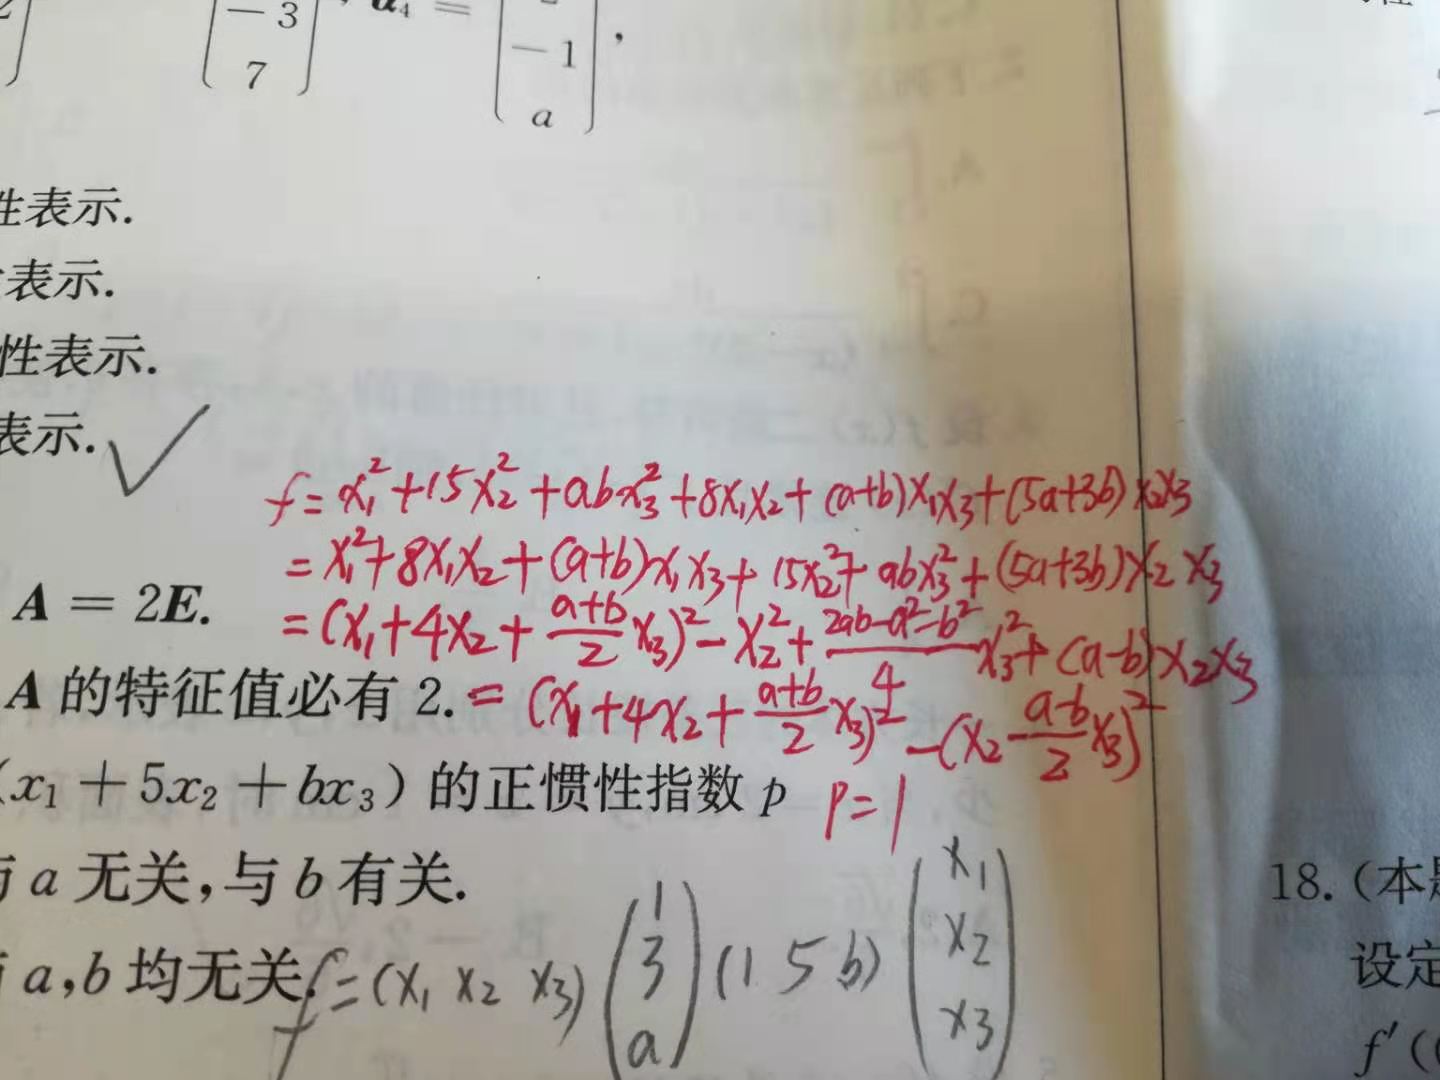 -3
7
α₄ =
-1
a
,
性表示.
表示.
性表示.
表示. ✓
f = x₁² + 15x₂² + abx₃² + 8x₁x₂ + (a+b)x₁x₃ + (5a+3b)x₂x₃
= x₁² + 8x₁x₂ + (a+b)x₁x₃ + 15x₂² + abx₃² + (5a+3b)x₂x₃
A = 2E.
= (x₁ + 4x₂ + (a+b)/2 x₃)² - x₂² + (2ab-a²-b²)/4 x₃² + (a-b)x₂x₃
A 的特征值必有 2.
= (x₁ + 4x₂ + (a+b)/2 x₃)² - (x₂ - (a-b)/2 x₃)²
(x₁ + 5x₂ + bx₃) 的正惯性指数 p
p = 1
a 无关,与 b 有关.
a,b 均无关.
f = (x₁ x₂ x₃) (1 3 a) (1 5 b) (x₁ x₂ x₃)
18. (本
设定
f′(